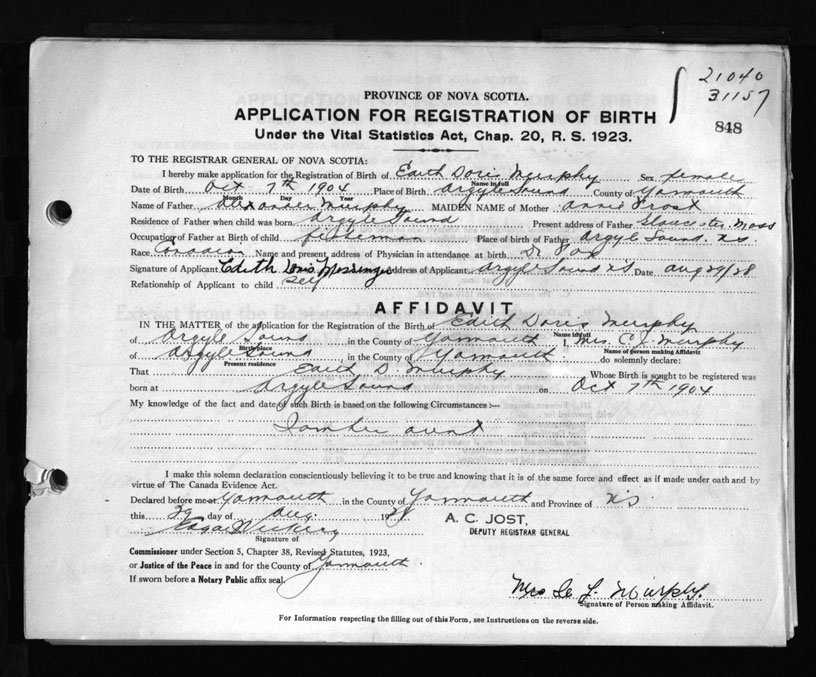 21040
31157
848
PROVINCE OF NOVA SCOTIA.
APPLICATION FOR REGISTRATION OF BIRTH
Under the Vital Statistics Act, Chap. 20, R. S. 1923.
TO THE REGISTRAR GENERAL OF NOVA SCOTIA:
I hereby make application for the Registration of Birth of Edith Doris Murphy Sex female
Name in full
Date of Birth Oct 7th 1904 Place of Birth Argyle Sound County of Yarmouth
Month Day Year
Name of Father Alexander Murphy MAIDEN NAME of Mother Annie Frost
Residence of Father when child was born Argyle Sound Present address of Father Gloucester, Mass
Occupation of Father at Birth of child fisherman Place of birth of Father Argyle Sound. N.S.
Race Canadian Name and present address of Physician in attendance at birth Dr Fox
Signature of Applicant Edith Doris Address of Applicant Argyle Sound N.S Date Aug 29/28
Relationship of Applicant to child self
AFFIDAVIT
IN THE MATTER of the application for the Registration of the Birth of Edith Doris Murphy
Name in full
of Argyle Sound in the County of Yarmouth, I, Mrs. C. J. Murphy
Birth place Name of person making Affidavit
of Argyle Sound, in the County of Yarmouth do solemnly declare:
Present residence
That Edith D. Murphy Whose Birth is sought to be registered was
born at Argyle Sound on Oct 7th 1904
My knowledge of the fact and date of such Birth is based on the following Circumstances :—
I am her aunt
I make this solemn declaration conscientiously believing it to be true and knowing that it is of the same force and effect as if made under oath and by
virtue of The Canada Evidence Act.
Declared before me at Yarmouth in the County of Yarmouth and Province of N.S.
this 29 day of Aug 1928
A. C. JOST,
DEPUTY REGISTRAR GENERAL
Signature of
Commissioner under Section 5, Chapter 38, Revised Statutes, 1923,
or Justice of the Peace in and for the County of Yarmouth.
If sworn before a Notary Public affix seal
Mrs J. Murphy.
Signature of Person making Affidavit.
For Information respecting the filling out of this Form, see Instructions on the reverse side.